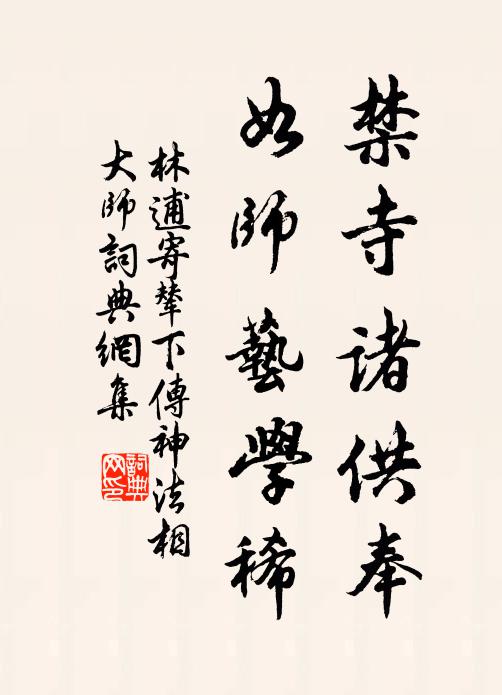 禁寺諸供奉
如師藝學稀
林逋寄輦下傳神法相
大師詞典網集
詞典网印